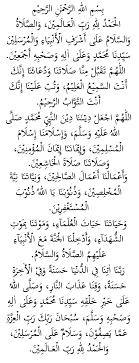 بِسْمِ اللهِ الرَّحْمٰنِ الرَّحِيْمِ
الْحَمْدُ لِلّٰهِ رَبِّ الْعَالَمِيْنَ، وَالصَّلَاةُ
وَالسَّلَامُ عَلَى أَشْرَفِ الْأَنْبِيَاءِ وَالْمُرْسَلِيْنَ
سَيِّدِنَا مُحَمَّدٍ وَعَلَى آلِهِ وَصَحْبِهِ أَجْمَعِيْنَ.
اللّٰهُمَّ تَقَبَّلْ مِنَّا صَلَاتَنَا وَدُعَائَنَا إِنَّكَ
أَنْتَ السَّمِيْعُ الْعَلِيْمُ، وَتُبْ عَلَيْنَا إِنَّكَ
أَنْتَ التَّوَّابُ الرَّحِيْمُ
اللّٰهُمَّ اجْعَلْ دِيْنَنَا دِيْنَ النَّبِيِّ مُحَمَّدٍ صَلَّى
اللهُ عَلَيْهِ وَسَلَّمَ، وَإِسْلَامَنَا إِسْلَامَ
الْمُسْلِمِيْنَ، وَإِيْمَانَنَا إِيْمَانَ الْمُؤْمِنِيْنَ،
وَصَلَاتَنَا صَلَاةَ الْخَاشِعِيْنَ.
وَأَعْمَالَنَا أَعْمَالَ الصَّالِحِيْنَ، وَنِيَّاتَنَا نِيَّةَ
الْمُخْلِصِيْنَ، وَذُنُوْبَنَا يَا اللهُ ذُنُوْبَ
الْمُسْتَغْفِرِيْنَ.
وَحَيَاتَنَا حَيَاتَ الْعُلَمَاءِ، وَمَوْتَنَا بِمَوْتِ
الشُّهَدَاءِ، وَأَدْخِلْنَا الْجَنَّةَ مَعَ الْأَنْبِيَاءِ
عَلَيْهِمُ الصَّلَاةُ وَالسَّلَامُ.
رَبَّنَا آتِنَا فِي الدُّنْيَا حَسَنَةً وَفِيْ الْآخِرَةِ
حَسَنَةً، وَقِنَا عَذَابَ النَّارِ، وَصَلَّى اللهُ
عَلَى خَيْرِ خَلْقِهِ سَيِّدِنَا مُحَمَّدٍ وَعَلَى آلِهِ
وَصَحْبِهِ وَسَلَّمَ، سُبْحَانَ رَبِّكَ رَبِّ الْعِزَّةِ
عَمَّا يَصِفُوْنَ، وَسَلَامٌ عَلَى الْمُرْسَلِيْنَ،
وَالْحَمْدُ لِلّٰهِ رَبِّ الْعَالَمِيْنَ.